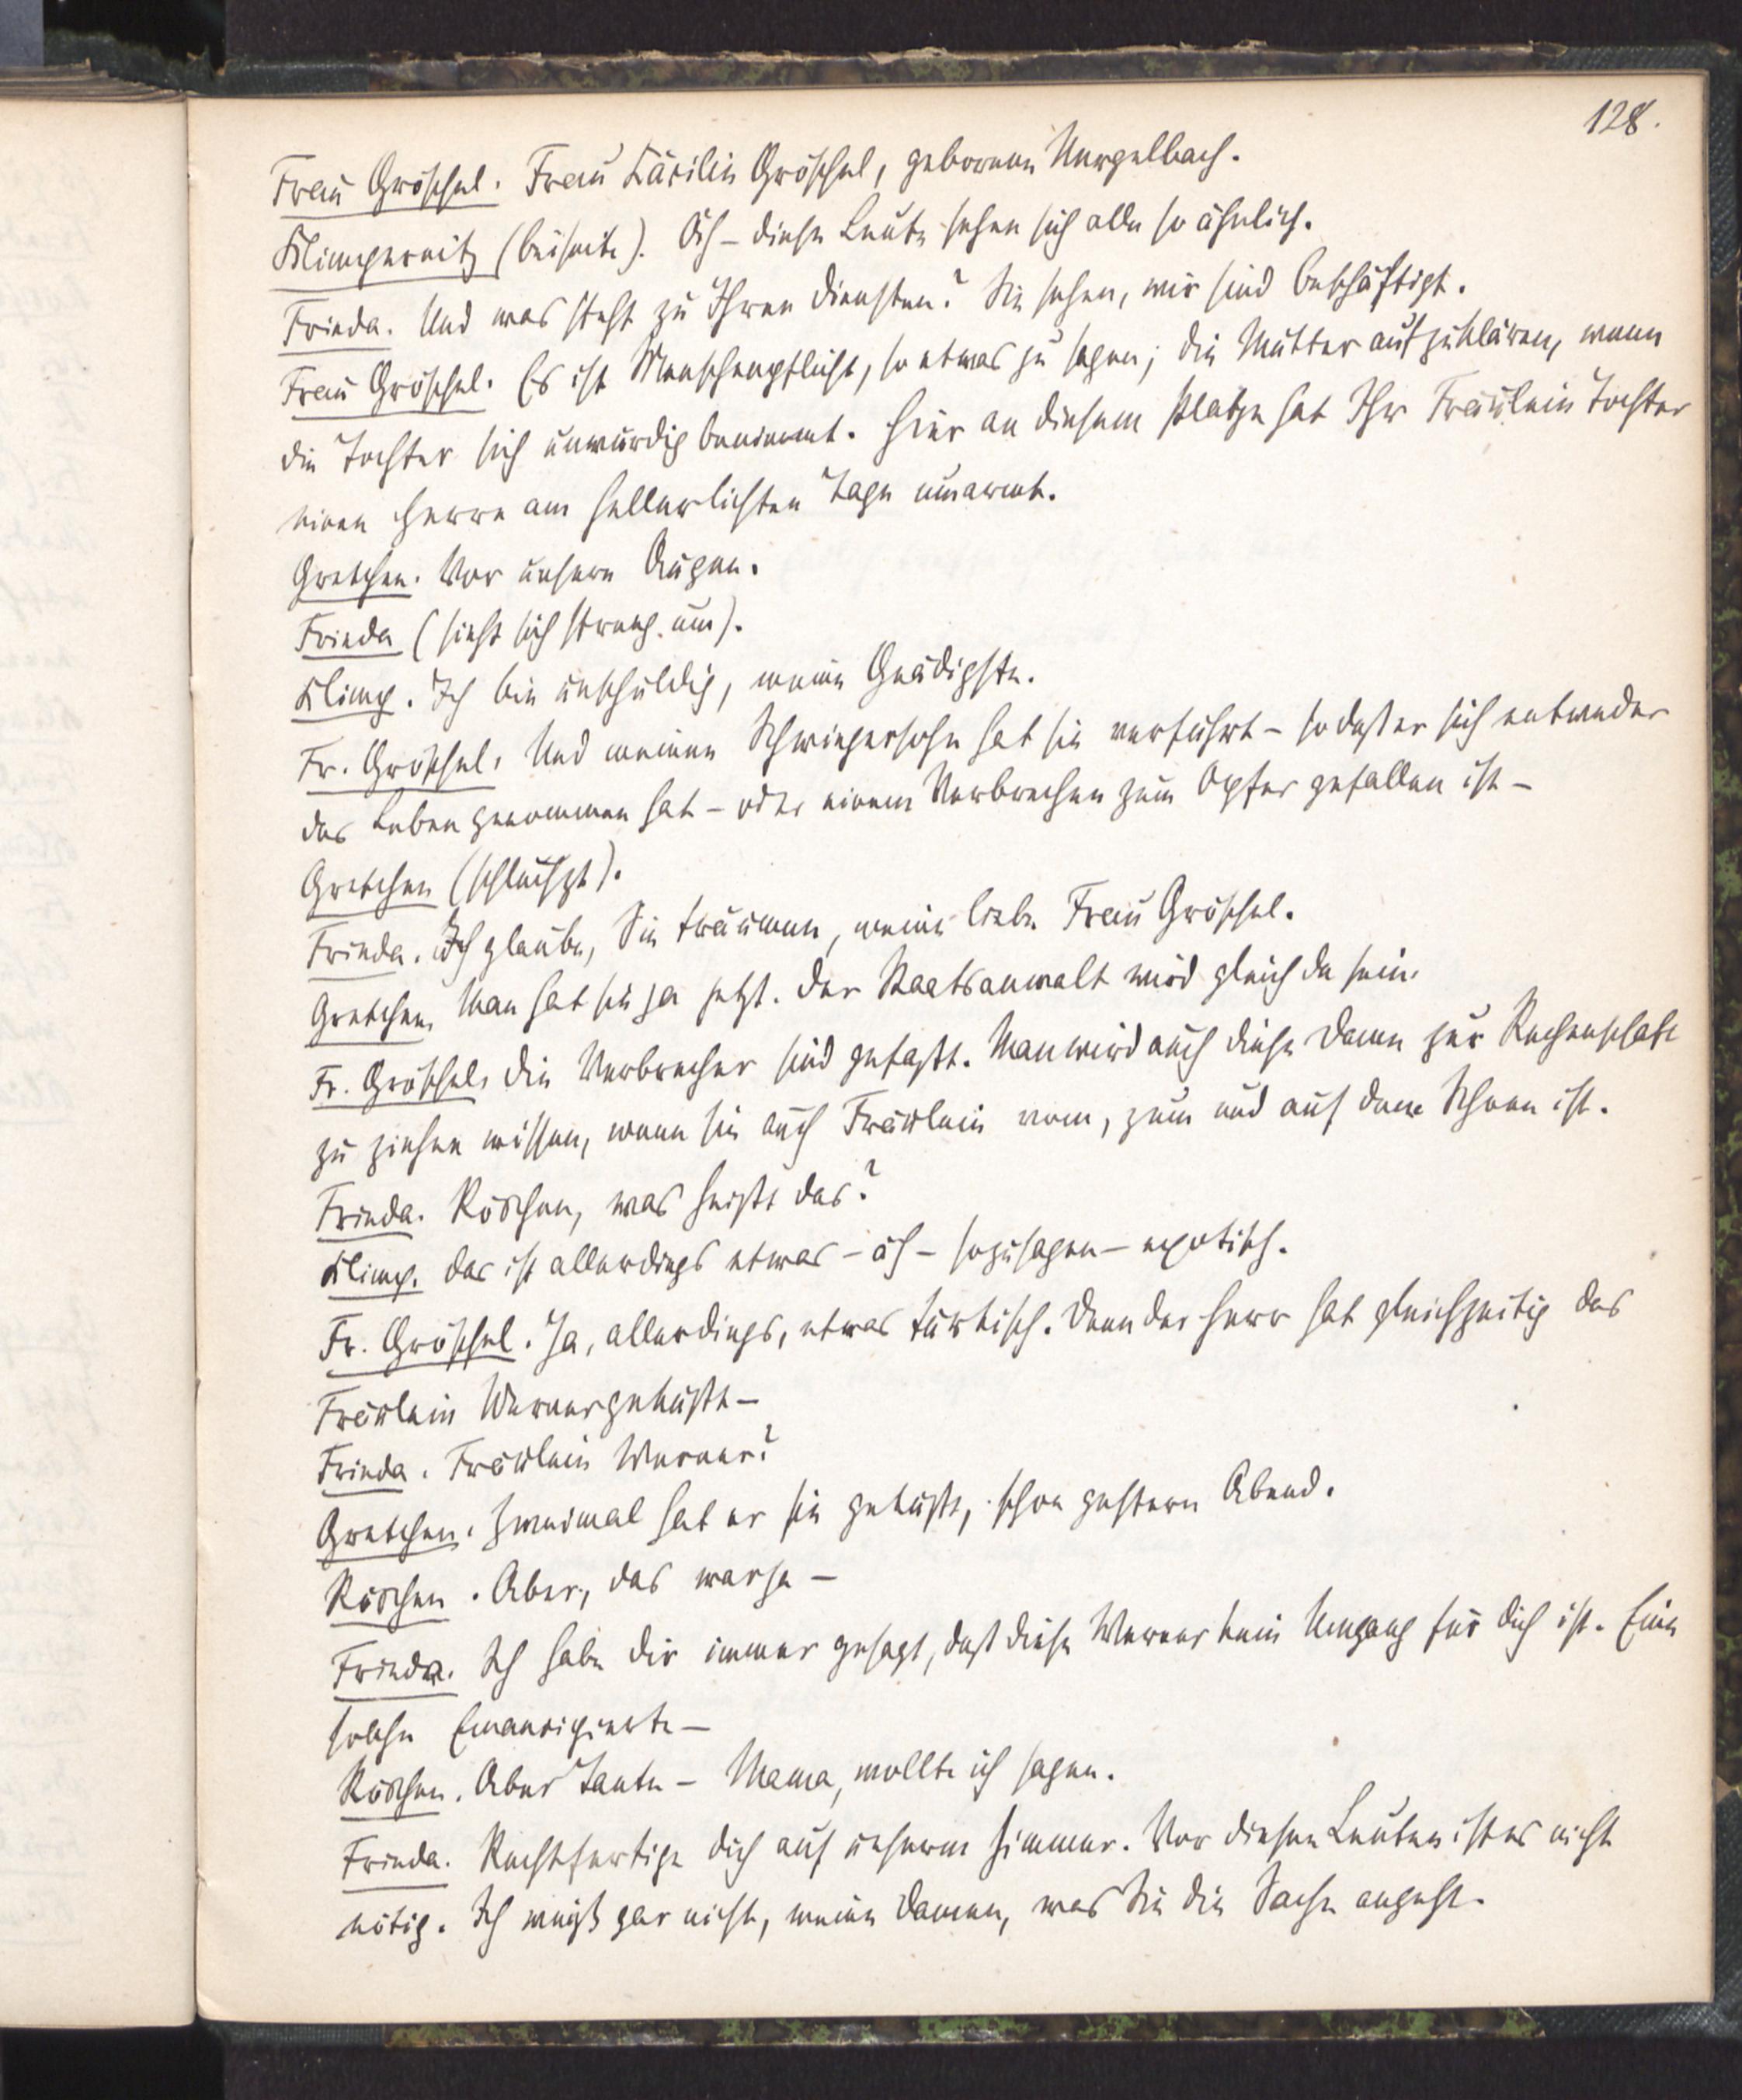 128.
Frau Gröschel. Frau Cäcilie Gröschel, geborene Nergelbach.
Klimpernitz (beiseite). Äh – diese Leute sehen sich alle so ähnlich.
Frieda. Und was steht zu Ihren Diensten? Sie sehen, wir sind beschäftigt.
Frau Gröschel. Es ist Menschenpflicht, so etwas zu sagen; die Mutter aufzuklären, wenn
die Tochter sich unwürdig benimmt. Hier an diesem Platze hat Ihr Fräulein Tochter
einen Herrn am hellerlichten Tage umarmt.
Gretchen. Vor unsern Augen.
Frieda (sieht sich streng um).
Klimp. Ich bin unschuldig, meine Gnädigste.
Fr. Gröschel. Und meinen Schwiegersohn hat sie verführt – so daß er sich entweder
das Leben genommen hat – oder einem Verbrechen zum Opfer gefallen ist –
Gretchen (schluchzt).
Frieda. Ich glaube, Sie träumen, meine liebe Frau Gröschel.
Gretchen. Man hat sie ja jetzt. Der Staatsanwalt wird gleich da sein.
Fr. Gröschel. Die Verbrecher sind gefaßt. Man wird auch diese Dame zur Rechenschaft
zu ziehen wissen, wenn sie auch Fräulein vom, zum und auf dem Schnee ist.
Frieda. Röschen, was heißt das?
Klimp. Das ist allerdings etwas – äh – sozusagen – exotisch.
Fr. Gröschel. Ja, allerdings, etwas türkisch. Denn der Herr hat gleichzeitig das
Fräulein Werner geküßt –
Frieda. Fräulein Werner?
Gretchen. Zweimal hat er sie geküßt, schon gestern Abend.
Röschen. Aber, das war ja –
Frieda. Ich habe dir immer gesagt, daß diese Werner kein Umgang für dich ist. Eine
solche Emancipierte –
Röschen. Aber Tante – Mama, wollte ich sagen.
Frieda. Rechtfertige dich auf unserm Zimmer. Vor diesen Leuten ist es nicht
nötig. Ich weiß gar nicht, meine Damen, was Sie die Sache angeht.